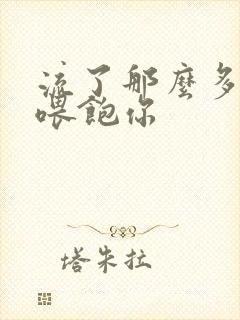 流了那麼多
喂飽你
塔朱拉